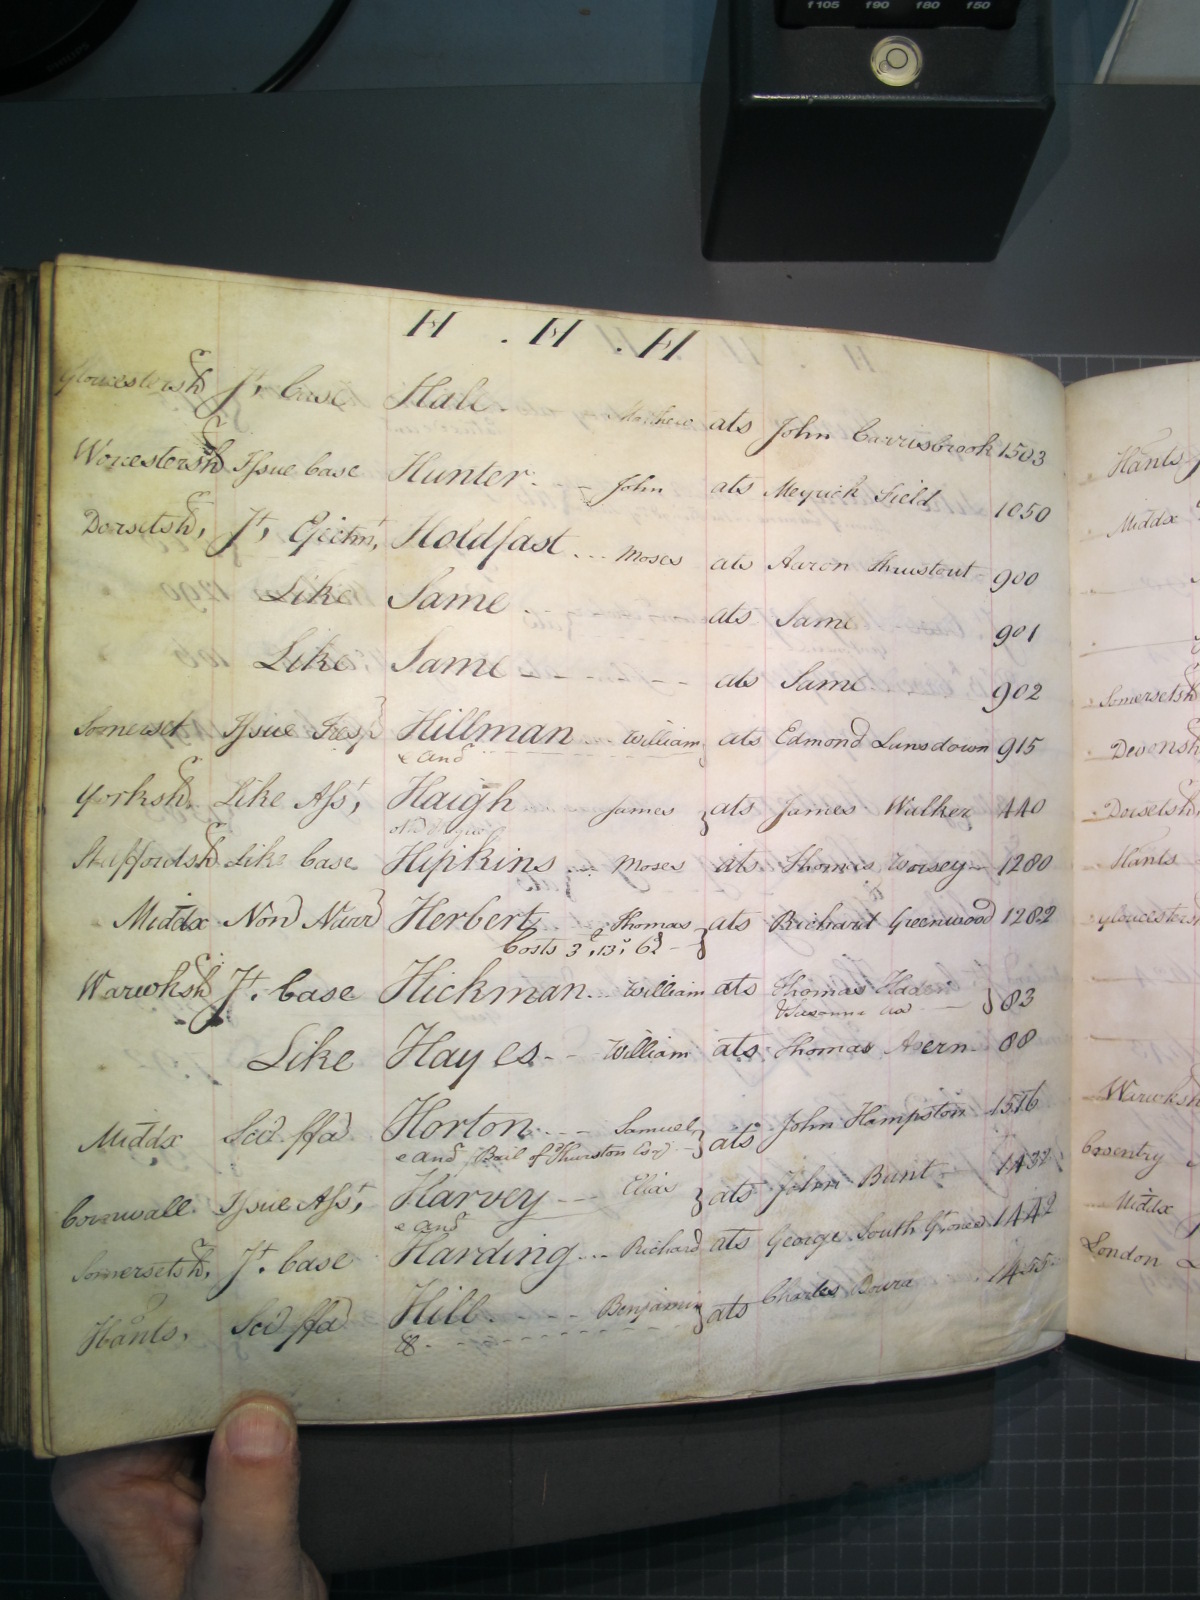 f105 f90 f80 f50
H . H . H
Gloucestersh Jt. Case Hall. Mathew ats John Carrisbrook 1503
Worcestersh Issue Case Hunter. John ats Meyrick Field 1050
Dorsetsh, Jt, Ejectmt, Holdfast ... Moses ats Aaron Thrustout 900
Like Same ats Same 901
Like Same ats Same 902
Somerset Issue Tresp Hillman ... William, ats Edmond Lansdown 915
& anr
Yorksh. Like Asst, Haigh James } ats James Walker 440
Staffordsh Like Case Hipkins ... Moses ats Thomas Worsey 1280
Middx Non Narr Herbert Thomas } ats Richard Greenwood 1282
Costs 3, 13, 6d
Warwksh Jt. Case Hickman ... William ats Thomas Haden } 83
Susanna ux
Like Hayes - - William ats Thomas Avern 88
Middx Sci ffa Horton - - - Samuel } ats John Hampston 1516
& anr Bail of Thurston Esqr
Cornwall. Issue Asst, Harvey - - - Elias } ats John Bunt 1432
& anr
Somersetsh, Jt. Case Harding ... Richard ats George South 1442
Hants, Sci ffa Hill Benjamin } ats Charles 1455
&.
Hants
Middx
Somersetsh
Devonsh
Dorsetsh,
Hants
Gloucestersh
Warwksh
Coventry
Middx
London